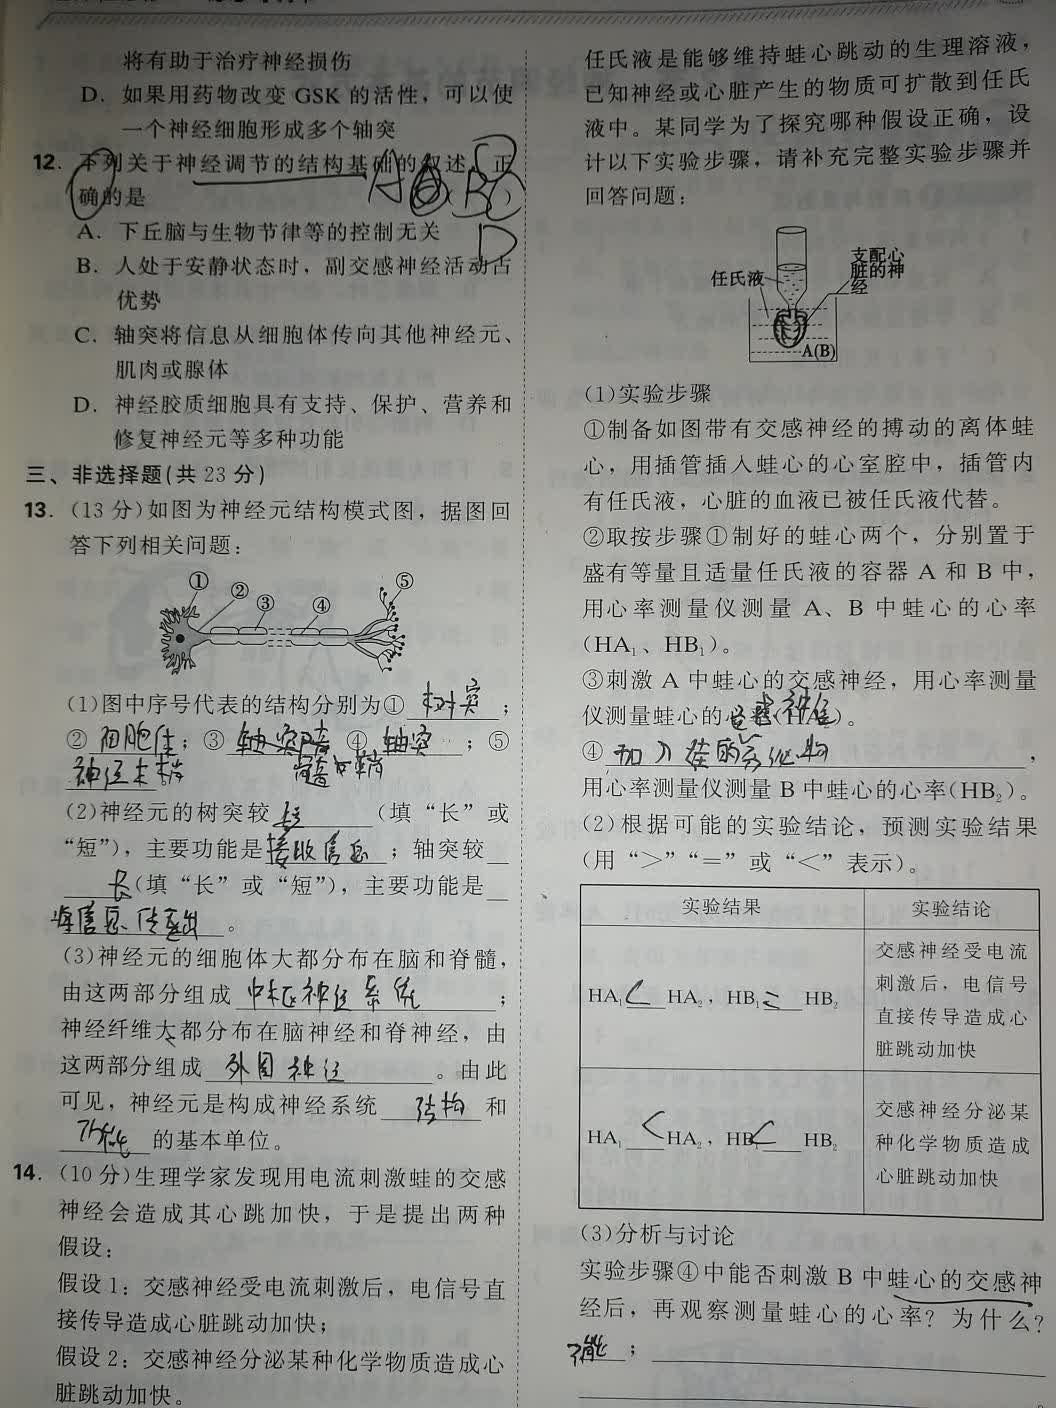 将有助于治疗神经损伤
D. 如果用药物改变 GSK 的活性，可以使
一个神经细胞形成多个轴突
12. 下列关于神经调节的结构基础的叙述，正
确的是
A. 下丘脑与生物节律等的控制无关
B. 人处于安静状态时，副交感神经活动占
优势
C. 轴突将信息从细胞体传向其他神经元、
肌肉或腺体
D. 神经胶质细胞具有支持、保护、营养和
修复神经元等多种功能
三、非选择题(共 23 分)
13. (13 分)如图为神经元结构模式图，据图回
答下列相关问题：
① ② ③ ④ ⑤
(1)图中序号代表的结构分别为① 树突；
② 细胞体；③ 轴突 ④ 轴突；⑤
神经末梢
(2)神经元的树突较 短 (填“长”或
“短”)，主要功能是 接收信息；轴突较
长 (填“长”或“短”)，主要功能是
将信息传出。
(3)神经元的细胞体大都分布在脑和脊髓，
由这两部分组成 中枢神经系统；
神经纤维大都分布在脑神经和脊神经，由
这两部分组成 外周神经。由此
可见，神经元是构成神经系统 结构 和
功能 的基本单位。
14. (10 分)生理学家发现用电流刺激蛙的交感
神经会造成其心跳加快，于是提出两种
假设：
假设 1：交感神经受电流刺激后，电信号直
接传导造成心脏跳动加快；
假设 2：交感神经分泌某种化学物质造成心
脏跳动加快。
任氏液是能够维持蛙心跳动的生理溶液，
已知神经或心脏产生的物质可扩散到任氏
液中。某同学为了探究哪种假设正确，设
计以下实验步骤，请补充完整实验步骤并
回答问题：
任氏液
支配心
脏的神
经
A(B)
(1)实验步骤
①制备如图带有交感神经的搏动的离体蛙
心，用插管插入蛙心的心室腔中，插管内
有任氏液，心脏的血液已被任氏液代替。
②取按步骤①制好的蛙心两个，分别置于
盛有等量且适量任氏液的容器 A 和 B 中，
用心率测量仪测量 A、B 中蛙心的心率
(HA₁、HB₁)。
③刺激 A 中蛙心的交感神经，用心率测量
仪测量蛙心的
④ 加入
用心率测量仪测量 B 中蛙心的心率(HB₂)。
(2)根据可能的实验结论，预测实验结果
(用“>”“=”或“<”表示)。
实验结果 实验结论
HA₁ < HA₂，HB₁ = HB₂
交感神经受电流
刺激后，电信号
直接传导造成心
脏跳动加快
HA₁ < HA₂，HB₁ < HB₂
交感神经分泌某
种化学物质造成
心脏跳动加快
(3)分析与讨论
实验步骤④中能否刺激 B 中蛙心的交感神
经后，再观察测量蛙心的心率？为什么？
不能；